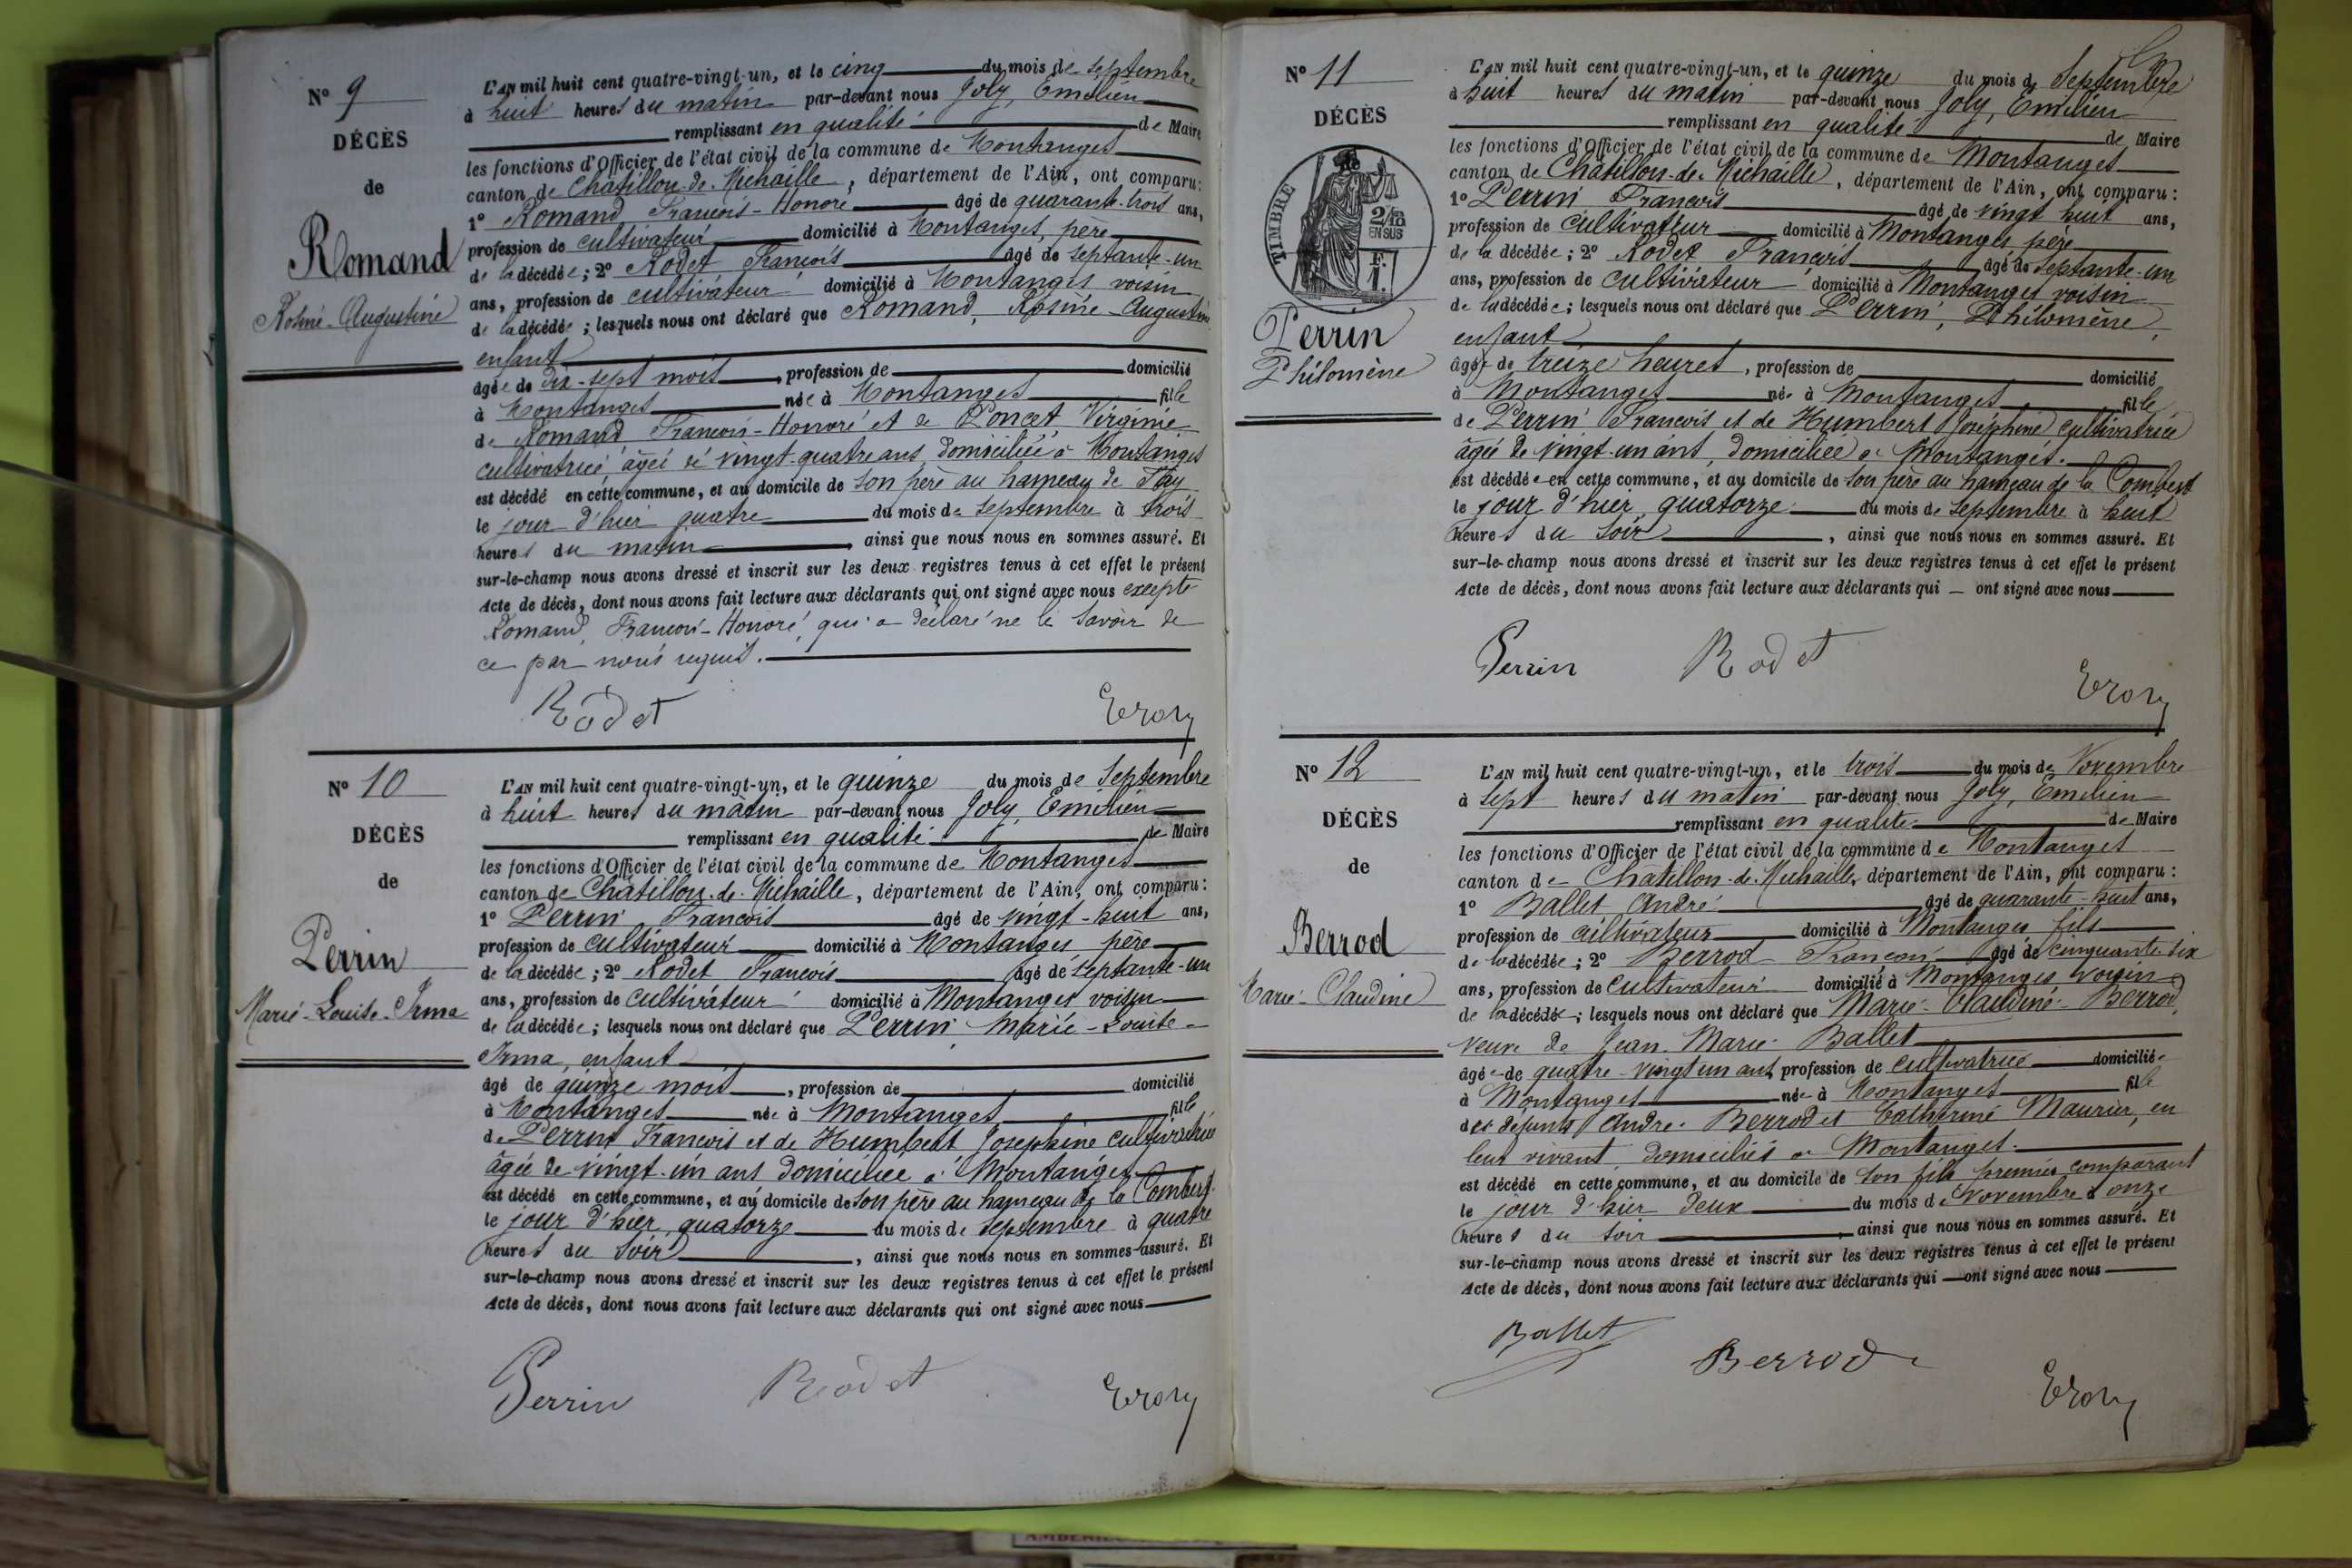 N° 9
DÉCÈS
de
Romand
Rosine-Augustine
L'AN mil huit cent quatre-vingt-un, et le cinq du mois de Septembre
à huit heures du matin par-devant nous Joly, Emilien
remplissant en qualité de Maire
les fonctions d'Officier de l'état civil de la commune de Montanges
canton de Châtillon-de-Michaille, département de l'Ain, ont comparu:
1° Romand François-Honoré âgé de quarante-trois ans,
profession de cultivateur domicilié à Montanges, père
de la décédée; 2° Rodet François âgé de septante-un
ans, profession de cultivateur domicilié à Montanges voisin
de la décédée; lesquels nous ont déclaré que Romand, Rosine-Augustine
enfant
âgée de dix-sept mois, profession de domicilié
à Montanges née à Montanges fille
de Romand François-Honoré et de Poncet Virginie
cultivatrice âgée de vingt-quatre ans domiciliée à Montanges
est décédé en cette commune, et au domicile de son père au hameau de
le jour d'hier quatre du mois de septembre à trois
heures du matin, ainsi que nous nous en sommes assuré. Et
sur-le-champ nous avons dressé et inscrit sur les deux registres tenus à cet effet le présent
Acte de décès, dont nous avons fait lecture aux déclarants qui ont signé avec nous excepté
Romand, François-Honoré, qui a déclaré ne le savoir de
ce par nous requis.
Rodet
N° 10
DÉCÈS
de
Perrin
Marie-Louise-Irma
L'AN mil huit cent quatre-vingt-un, et le quinze du mois de Septembre
à huit heures du matin par-devant nous Joly, Emilien
remplissant en qualité de Maire
les fonctions d'Officier de l'état civil de la commune de Montanges
canton de Châtillon-de-Michaille, département de l'Ain, ont comparu:
1° Perrin François âgé de vingt-huit ans,
profession de cultivateur domicilié à Montanges père
de la décédée; 2° Rodet François âgé de septante-un
ans, profession de cultivateur domicilié à Montanges voisin
de la décédée; lesquels nous ont déclaré que Perrin, Marie-Louise-
Irma, enfant
âgé de quinze mois, profession de domicilié
à Montanges née à Montanges fille
de Perrin François et de Humbert Josephine cultivatrice
âgée de vingt-un ans domiciliée à Montanges
est décédé en cette commune, et au domicile de son père au hameau de la
le jour d'hier quatorze du mois de septembre à quatre
heures du soir, ainsi que nous nous en sommes assuré. Et
sur-le-champ nous avons dressé et inscrit sur les deux registres tenus à cet effet le présent
Acte de décès, dont nous avons fait lecture aux déclarants qui ont signé avec nous
Perrin Rodet
N° 11
DÉCÈS
TIMBRE
2/10 EN SUS
F. 1.
Perrin
Philomène
L'AN mil huit cent quatre-vingt-un, et le quinze du mois de Septembre
à huit heures du matin par-devant nous Joly, Emilien
remplissant en qualité de Maire
les fonctions d'Officier de l'état civil de la commune de Montanges
canton de Châtillon-de-Michaille, département de l'Ain, ont comparu:
1° Perrin François âgé de vingt huit ans,
profession de cultivateur domicilié à Montanges père
de la décédée; 2° Rodet François âgé de septante-un
ans, profession de cultivateur domicilié à Montanges voisin
de la décédée; lesquels nous ont déclaré que Perrin, Philomène,
enfant
âgée de treize heures, profession de domicilié
à Montanges née à Montanges fille
de Perrin François et de Humbert Joséphine cultivatrice
âgée de vingt-un ans, domiciliée à Montanges.
est décédée en cette commune, et au domicile de son père au hameau de la
le jour d'hier, quatorze du mois de septembre à huit
heures du soir, ainsi que nous nous en sommes assuré. Et
sur-le-champ nous avons dressé et inscrit sur les deux registres tenus à cet effet le présent
Acte de décès, dont nous avons fait lecture aux déclarants qui — ont signé avec nous
Perrin Rodet
N° 12
DÉCÈS
de
Berrod
Marie-Claudine
L'AN mil huit cent quatre-vingt-un, et le trois du mois de Novembre
à sept heures du matin par-devant nous Joly, Emilien
remplissant en qualité de Maire
les fonctions d'Officier de l'état civil de la commune de Montanges
canton de Châtillon-de-Michaille, département de l'Ain, ont comparu:
1° Ballet André âgé de quarante-huit ans,
profession de cultivateur domicilié à Montanges fils
de la décédée; 2° Berrod François âgé de cinquante-six
ans, profession de cultivateur domicilié à Montanges voisin
de la décédée; lesquels nous ont déclaré que Marie-Claudine Berrod,
veuve de Jean-Marie Ballet
âgée de quatre-vingt un ans, profession de cultivatrice domiciliée
à Montanges née à Montanges fille
des défunts André Berrod et Catherine Maurier, en
leur vivant domiciliés à Montanges.
est décédé en cette commune, et au domicile de son fils premier comparant
le jour d'hier deux du mois de Novembre à onze
heures du soir, ainsi que nous nous en sommes assuré. Et
sur-le-champ nous avons dressé et inscrit sur les deux registres tenus à cet effet le présent
Acte de décès, dont nous avons fait lecture aux déclarants qui — ont signé avec nous
Ballet
Berrod